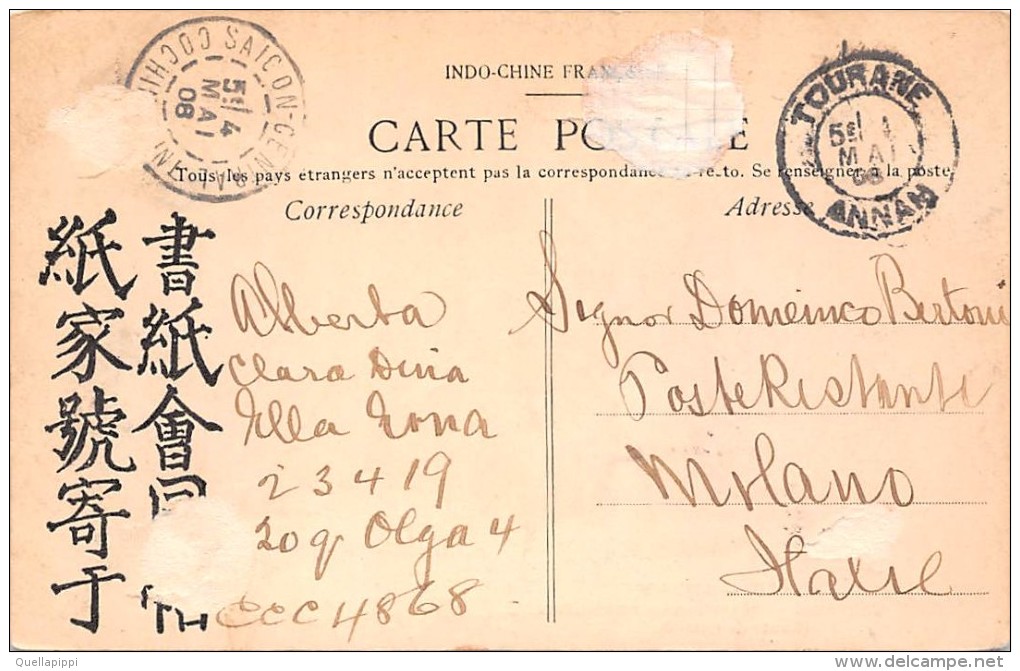 SAIGON-CENTRAL
5E/4
MAI
08
INDO-CHINE FRANÇAISE
CARTE POSTALE
TOURANE
5E/
MAI
08
ANNAM
Tous les pays étrangers n'acceptent pas la correspondance au recto. Se renseigner à la poste
Correspondance
Adresse
書紙會回
紙家號寄于
Alberta
Clara Dina
Ella Irma
2 3 4 19
20 q Olga 4
CCC 4868
Signor Domenico Bertoni
Poste Restante
Milano
Italie
Quellapippi
delcampe.net